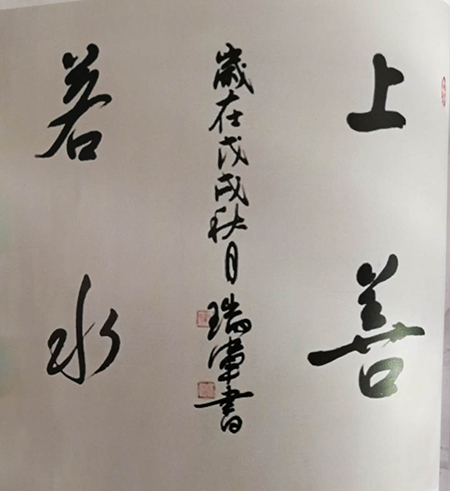 上善
若水
歲在戊戌秋月瑞軍書